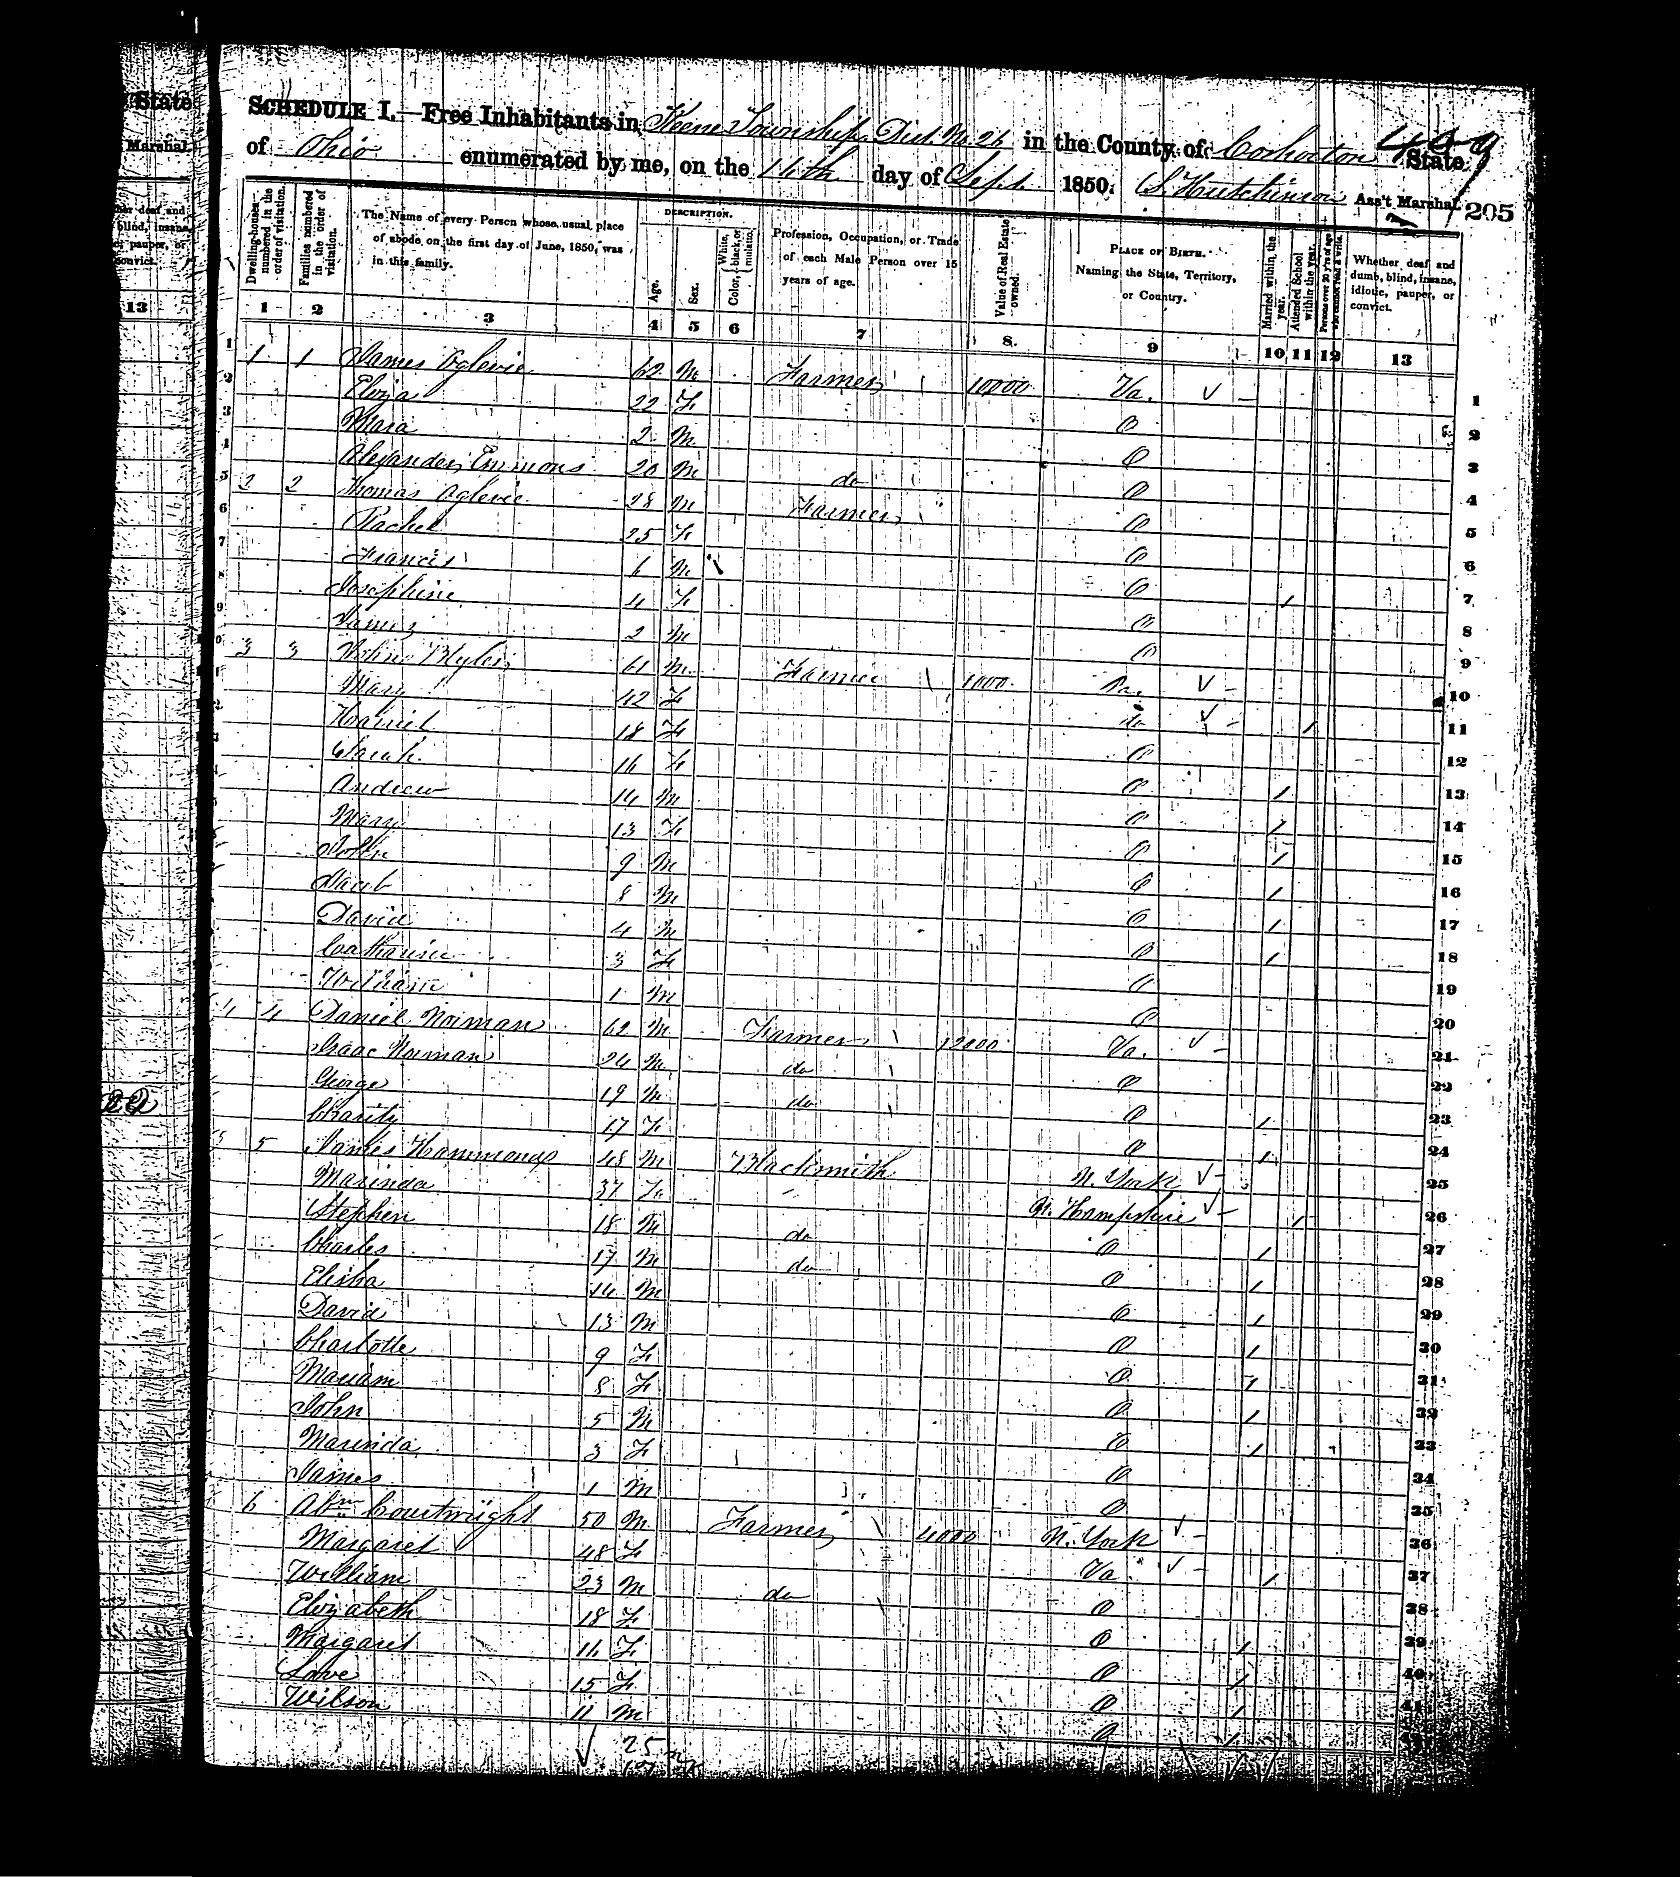 State
Marshal.
her deaf and
blind, insane,
pauper, or
convict.
13
SCHEDULE I.—Free Inhabitants in Keene Township Dist. No. 26 in the County of Coshocton State
of Ohio enumerated by me, on the 16th day of Sept 1850. S. Hutchinson Ass't Marshal.
205
Dwelling-houses numbered in the order of visitation.
Families numbered in the order of visitation.
The Name of every Person whose usual place of abode on the first day of June, 1850, was in this family.
DESCRIPTION.
Age.
Sex.
Color, White, black, or mulatto.
Profession, Occupation, or Trade of each Male Person over 15 years of age.
Value of Real Estate owned.
PLACE OF BIRTH. Naming the State, Territory, or Country.
Married within the year.
Attended School within the year.
Persons over 20 y'rs of age who cannot read & write.
Whether deaf and dumb, blind, insane, idiotic, pauper, or convict.
1 2 3 4 5 6 7 8. 9 10 11 12 13
1 1 James Oglevie 62 M Farmer 10000 Va. 1
2 Eliza 22 F O 2
3 2 M O 3
4 Alexander Emmons 20 M do O 4
5 2 2 Thomas Oglevie 28 M Farmer O 5
6 Rachel 25 F O 6
7 Francis 6 M O 7
8 Josephine 4 F O 8
9 James 2 M O 9
3 3 John 61 M Farmer 1000 Pa. 10
Mary 42 F do 11
Harriet 18 F O 12
Sarah 16 F O 13
Andrew 14 M O 14
Mary 13 F O 15
John 9 M O 16
Jacob 8 M O 17
David 4 M O 18
Catharine 3 F O 19
William 1 M O 20
4 4 Daniel Norman 62 M Farmer 12000 Va. 21
Isaac Norman 24 M do O 22
George 19 M do O 23
Charity 17 F O 24
5 5 James Hammond 48 M Blacksmith N. York 25
Marinda 37 F N. Hampshire 26
Stephen 18 M do O 27
Charles 17 M do O 28
Elisha 14 M O 29
David 13 M O 30
Charlotte 9 F O 31
Mariam 8 F O 32
John 5 M O 33
Marinda 3 F O 34
James 1 M O 35
6 Abm Courtwright 50 M Farmer 4000 N. York 36
Margaret 48 F Va 37
William 23 M do O 38
Elizabeth 18 F O 39
Margaret 16 F O 40
Love 15 F O 41
Wilson 11 M O
25 m